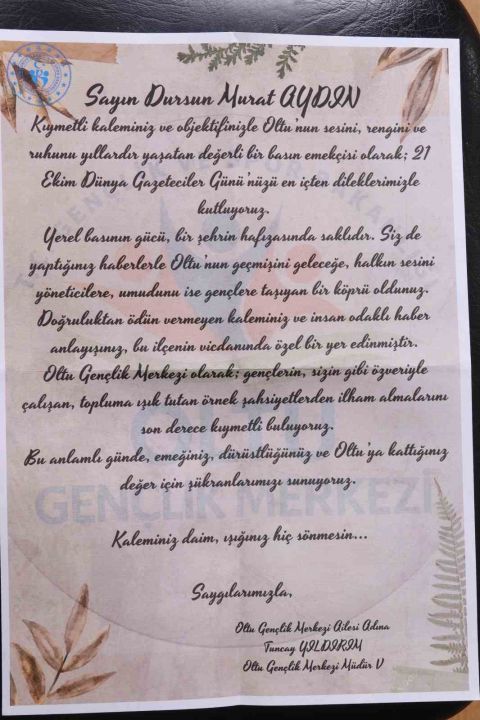 Sayın Dursun Murat AYDIN
Kıymetli kaleminiz ve objektifinizle Oltu'nun sesini, rengini ve
ruhunu yıllardır yaşatan değerli bir basın emekçisi olarak; 21
Ekim Dünya Gazeteciler Günü'nüzü en içten dileklerimizle
kutluyoruz.
Yerel basının gücü, bir şehrin hafızasında saklıdır. Siz de
yaptığınız haberlerle Oltu'nun geçmişini geleceğe, halkın sesini
yöneticilere, umudunu ise gençlere taşıyan bir köprü oldunuz.
Doğruluktan ödün vermeyen kaleminiz ve insan odaklı haber
anlayışınız, bu ilçenin vicdanında özel bir yer edinmiştir.
Oltu Gençlik Merkezi olarak; gençlerin, sizin gibi özveriyle
çalışan, topluma ışık tutan örnek şahsiyetlerden ilham almalarını
son derece kıymetli buluyoruz.
Bu anlamlı günde, emeğiniz, dürüstlüğünüz ve Oltu'ya kattığınız
değer için şükranlarımızı sunuyoruz.
GENÇLİK MERKEZİ
Kaleminiz daim, ışığınız hiç sönmesin...
Saygılarımızla,
Oltu Gençlik Merkezi Ailesi Adına
Tuncay YILDIRIM
Oltu Gençlik Merkezi Müdür V